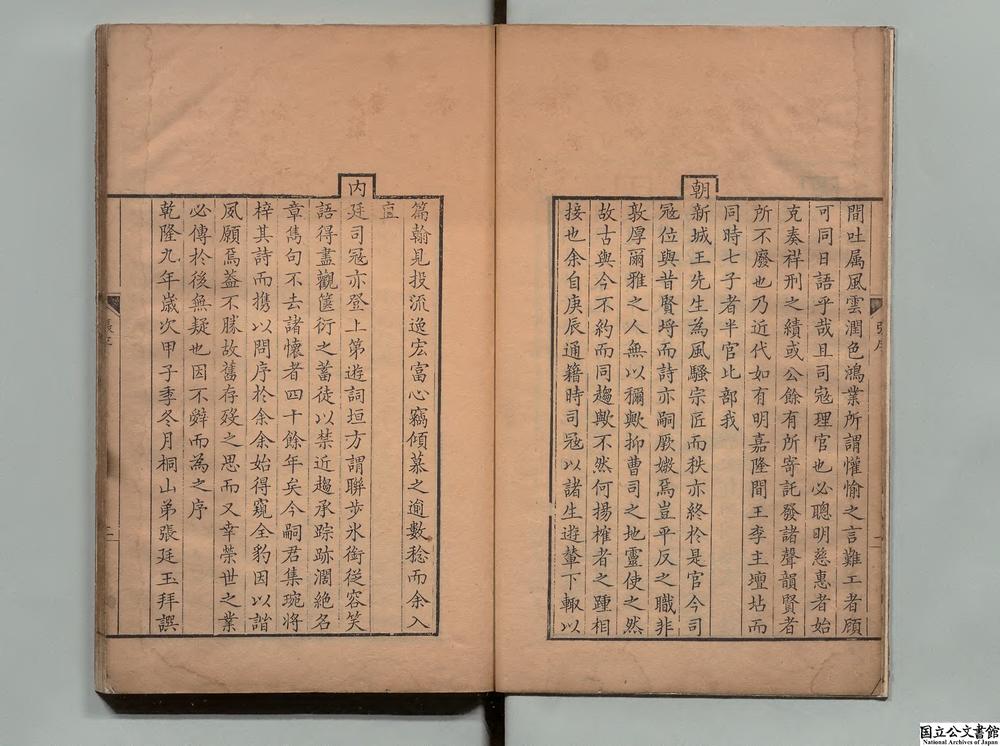 間吐属風雲潤色鴻業所謂懽愉之言難工者頋
可同日語乎哉且司寇理官也必聰明慈惠者始
克奏祥刑之績或公餘有所寄託發諸聲韻賢者
所不廢也乃近代如有明嘉隆間王李主壇坫而
同時七子者半官比部我
朝新城王先生為風騷宗匠而秩亦終於是官今司
寇位與昔賢埒而詩亦嗣厥媺焉豈平反之職非
敦厚爾雅之人無以穪歟抑曹司之地靈使之然
故古與今不約而同趨歟不然何揚榷者之踵相
接也余自庚辰通籍時司寇以諸生遊輦下輙以
篇翰見投流逸宏富心竊傾慕之逾數稔而余入
直
内廷司寇亦登上第遊詞垣方謂聯步氷銜従容笑
語得盡觀篋衍之蓄徒以禁近趨承踪跡濶絶名
章雋句不去諸懷者四十餘年矣今嗣君集琬將
梓其詩而携以問序於余余始得窺全豹因以諧
夙願焉葢不勝故舊存歿之思而又幸榮世之業
必傳於後無疑也因不辤而為之序
乾隆九年歲次甲子季冬月桐山弟張廷玉拜譔
張序
二
国立公文書館
National Archives of Japan